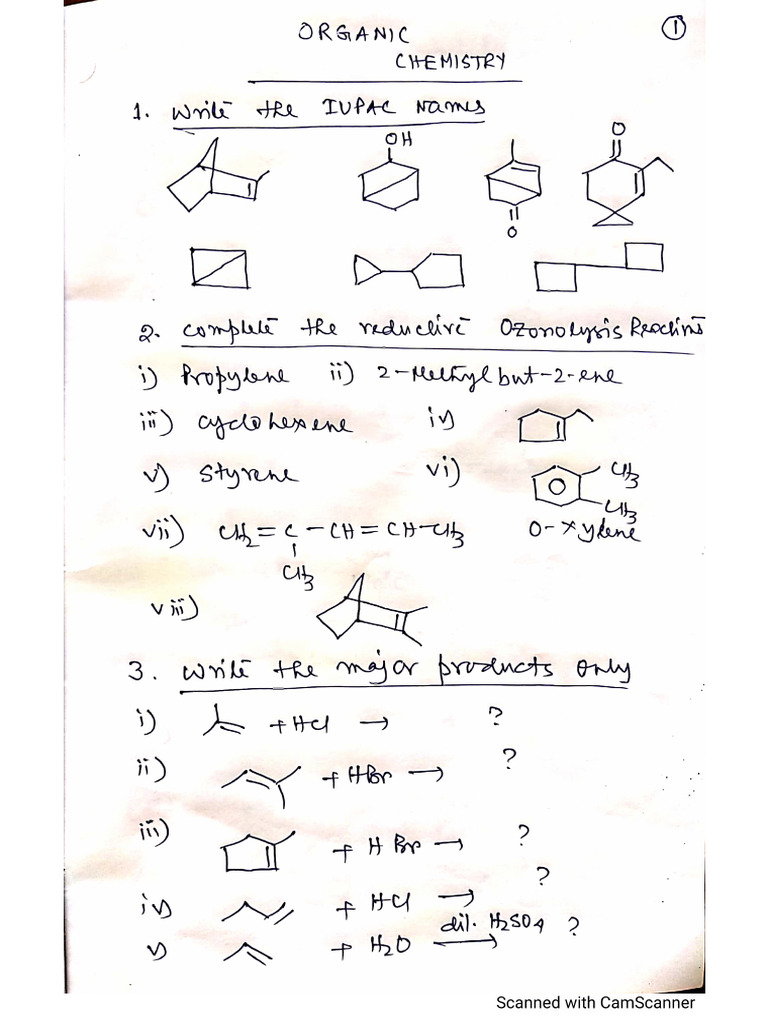 ORGANIC
①
CHEMISTRY
1. Write the IUPAC Names
OH
O
O
2. Complete the reductive Ozonolysis Reactions
i) Propylene ii) 2-Methylbut-2-ene
iii) cyclohexene iv)
v) Styrene vi) CH3
CH3
vii) CH2=C-CH=CH-CH3 O-xylene
CH3
viii)
3. Write the major products only
i) +HCl → ?
ii) +HBr → ?
iii) + HBr → ?
iv) + HCl → ?
v) + H2O dil. H2SO4 → ?
Scanned with CamScanner